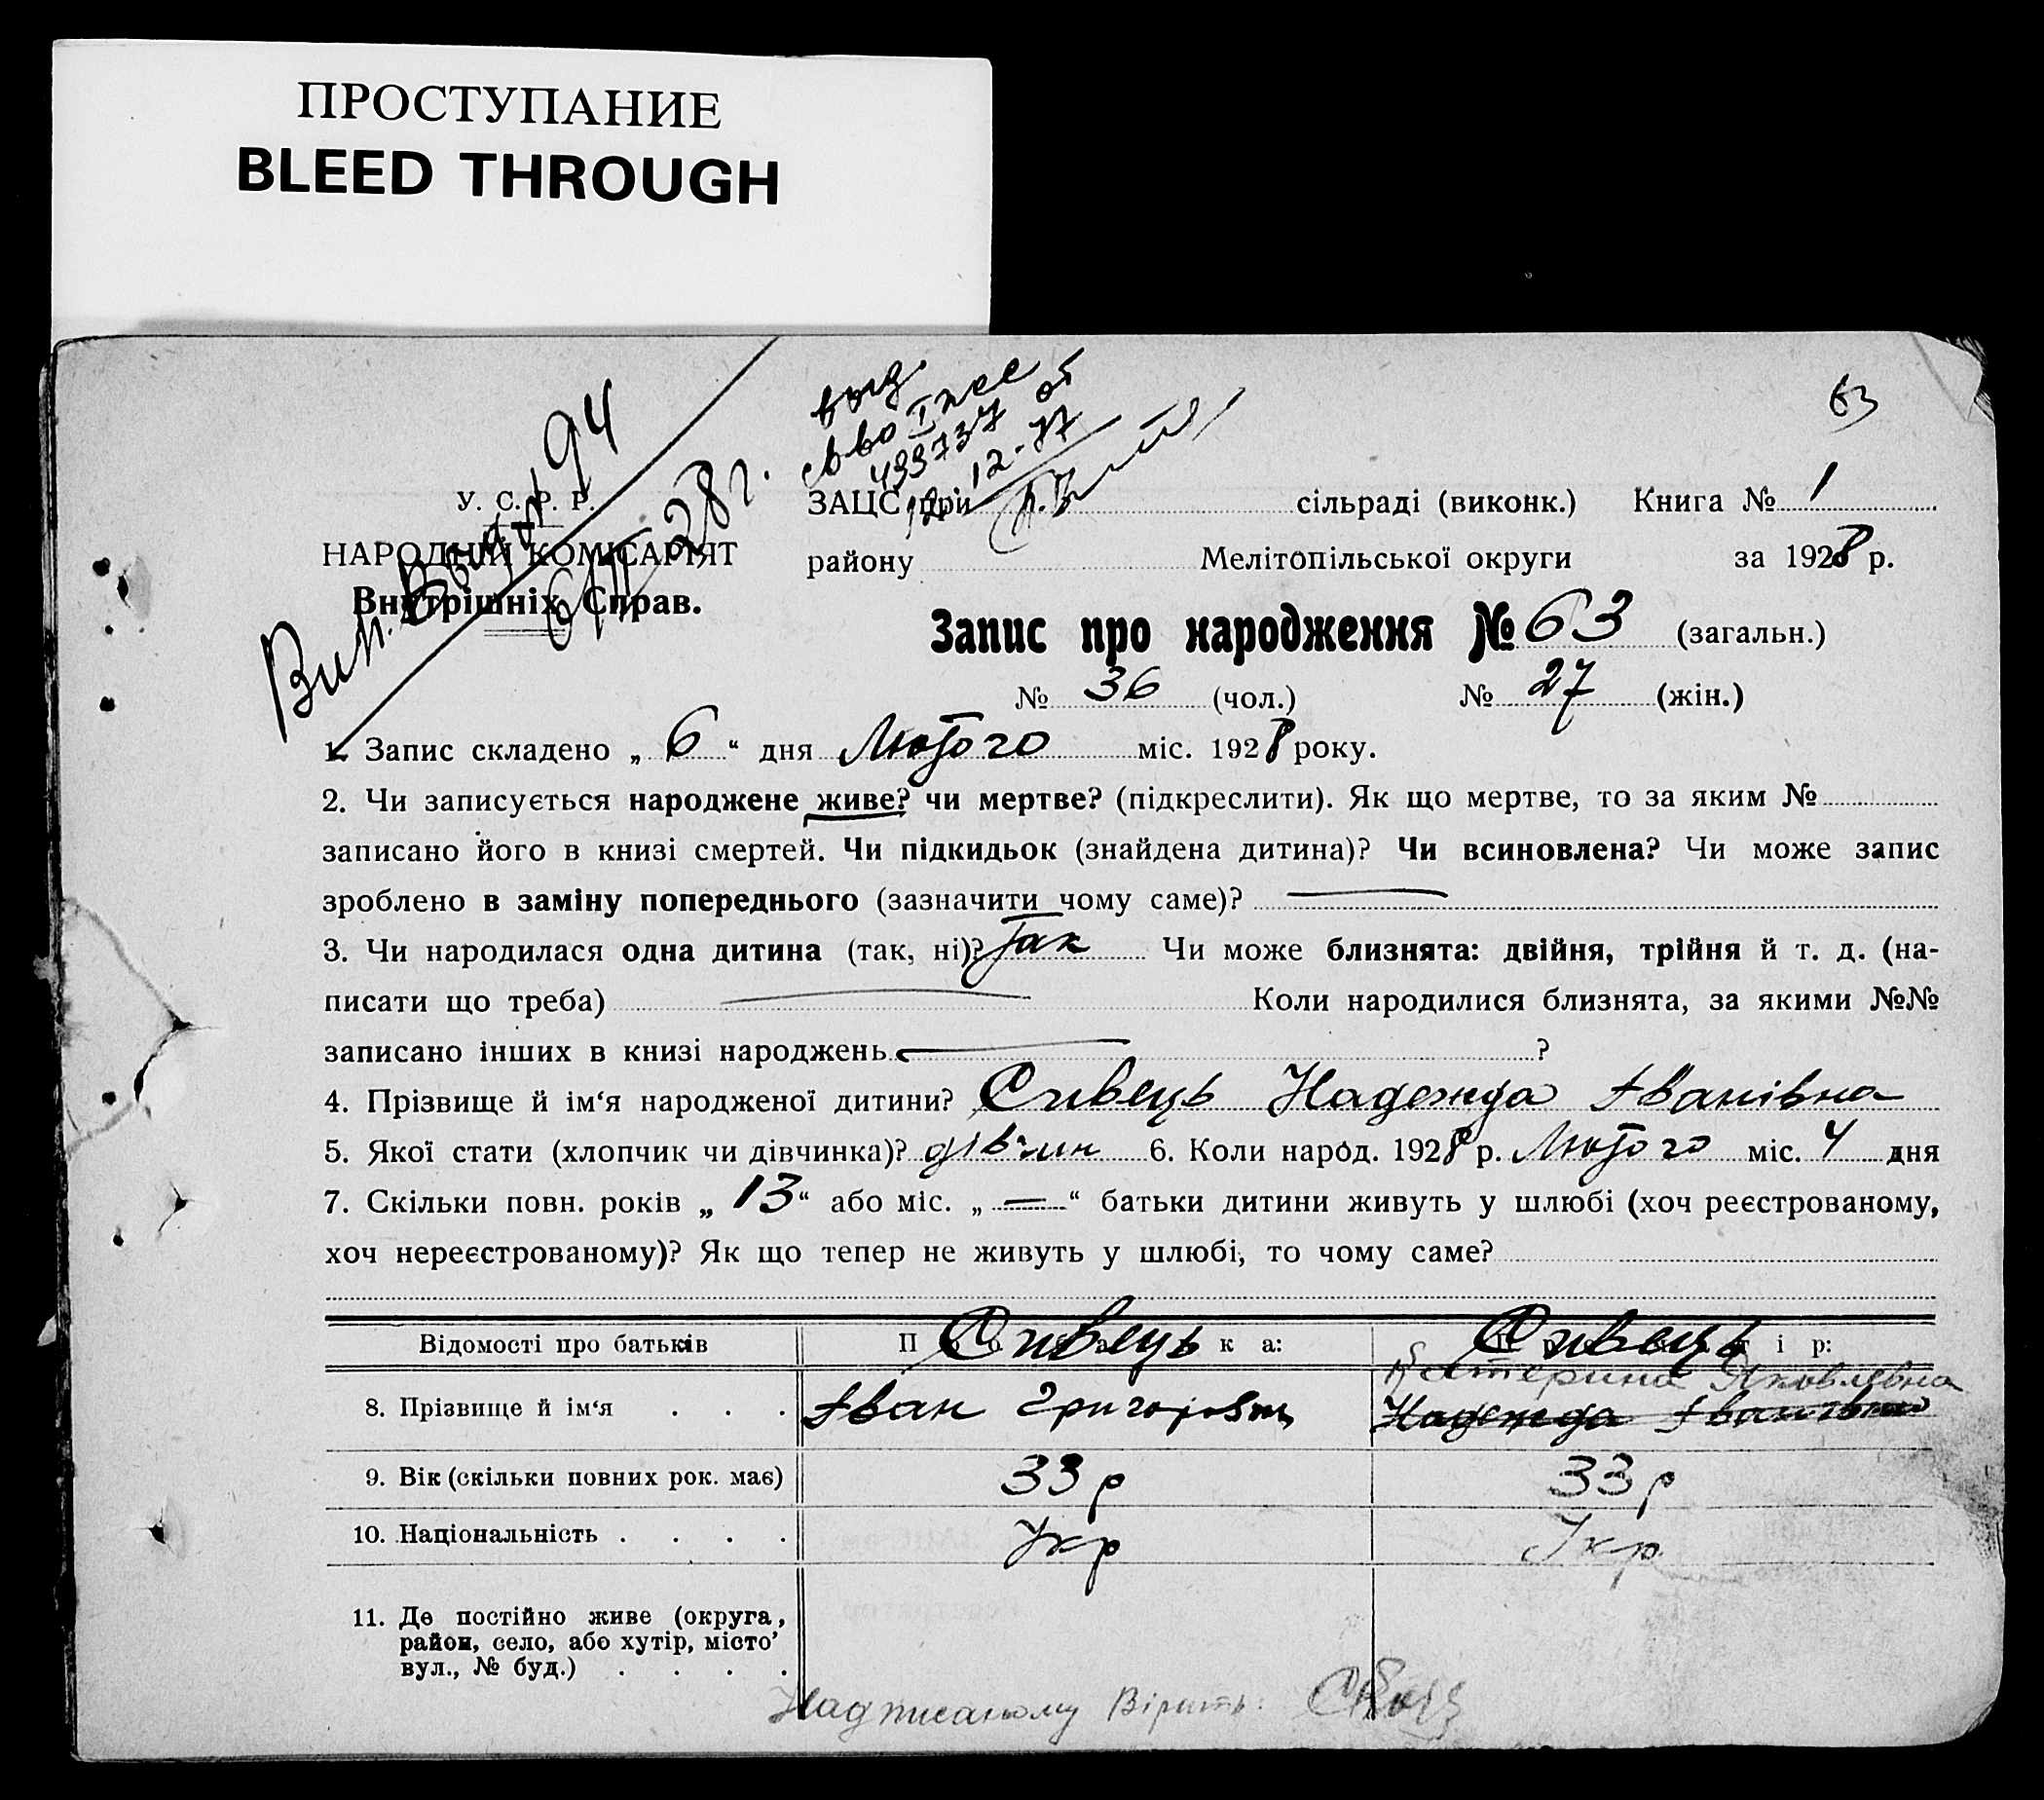 ПРОСТУПАНИЕ
BLEED THROUGH
63
выд.
св во I
433737 от
12-12-77
Вип. Выдан 94
6/II 28 г.
У. С. Р. Р.
НАРОДНІЙ КОМІСАРІЯТ
Внутрішніх Справ.
ЗАЦС при сільраді (виконк.) Книга № 1
району Мелітопільської округи за 1928 р.
Запис про народження № 63 (загальн.)
№ 36 (чол.) № 27 (жін.)
1. Запис складено „ 6 “ дня Лютого міс. 1928 року.
2. Чи записується народжене живе? чи мертве? (підкреслити). Як що мертве, то за яким №
записано його в книзі смертей. Чи підкидьок (знайдена дитина)? Чи всиновлена? Чи може запис
зроблено в заміну попереднього (зазначити чому саме)? —
3. Чи народилася одна дитина (так, ні)? Так Чи може близнята: двійня, трійня й т. д. (на-
писати що треба) — Коли народилися близнята, за якими №№
записано інших в книзі народжень — ?
4. Прізвище й ім‘я народженої дитини? Сивець Надежда Іванівна
5. Якої стати (хлопчик чи дівчинка)? дівчин 6. Коли народ. 1928 р. Лютого міс. 4 дня
7. Скільки повн. років „ 13 “ або міс. „ — “ батьки дитини живуть у шлюбі (хоч реєстрованому,
хоч нереєстрованому)? Як що тепер не живуть у шлюбі, то чому саме?
Відомості про батьків Сивець Сивець
Катерина Яковлевна
8. Прізвище й ім‘я . . . Іван Григорович Надежда Іванівна
9. Вік (скільки повних рок. має) 33 р 33 р
10. Національність . . . . Укр Укр.
11. Де постійно живе (округа,
район, село, або хутір, місто,
вул., № буд.) . . . .
Надписаному Вірить: